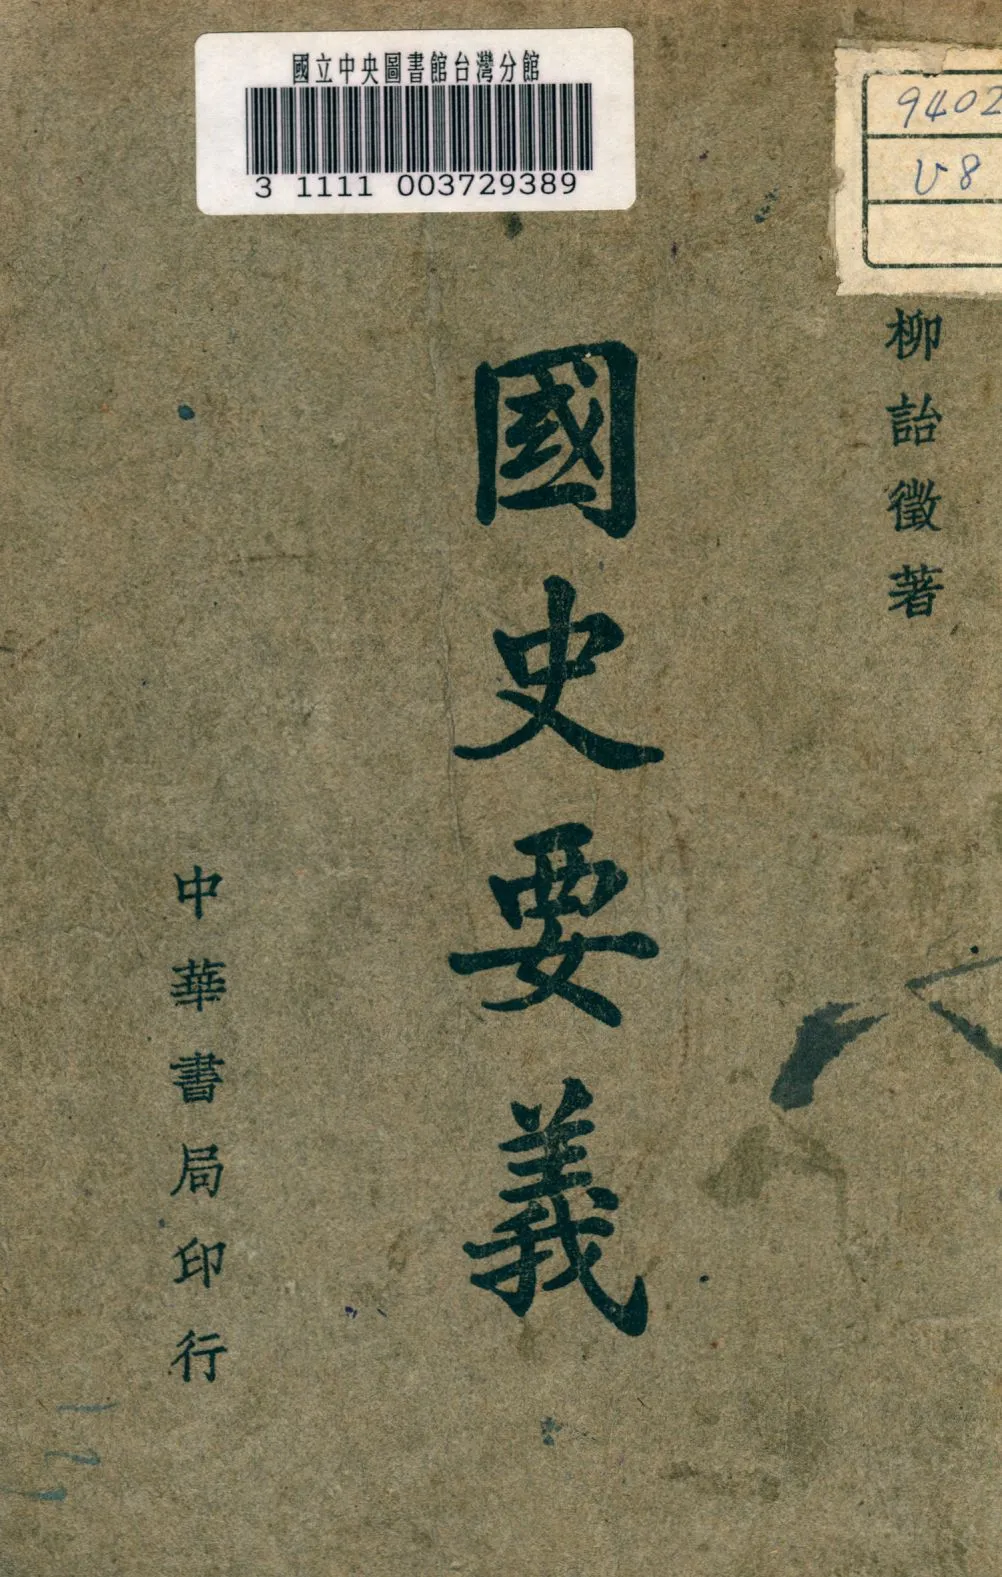 國立中央圖書館台灣分館
3 1111 003729389
9402
柳詒徵著
國史要義
中華書局印行